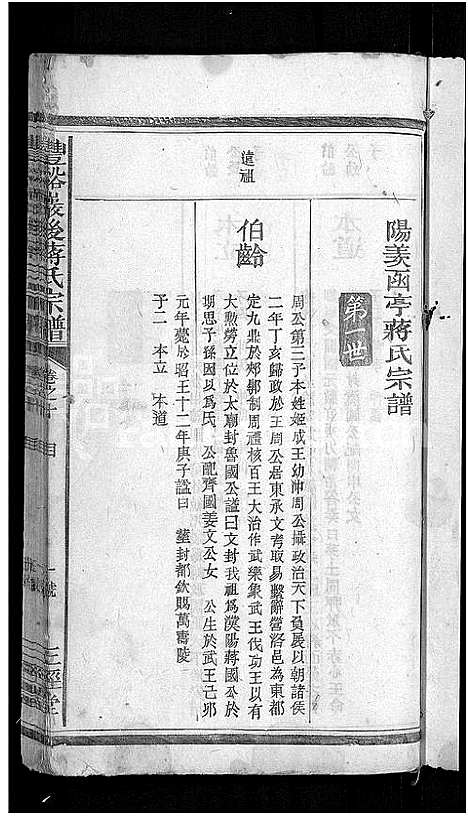 陽羨函亭蔣氏宗譜
第一世
遠祖
伯齡
周公第三子本姓姬成王幼冲周公攝政治天下負扆以朝諸侯
二年丁亥歸政於王周公居東承文考取易繫辭營洛邑為東都
定九鼎於郟鄏制周禮核百王大治作武樂象武王伐功王以有
大勲勞立位於太廟封魯國公謚曰文封我祖爲漢陽蔣國公於
期思子孫因以為氏 公配齊國姜文公女 公生於武王己卯
元年薨於昭王十二年庚子謚曰 塟封都欽賜萬壽陵
子二 本立 本道
豐谿嚴後蔣氏宗譜
卷之十
目
一號
三徑堂